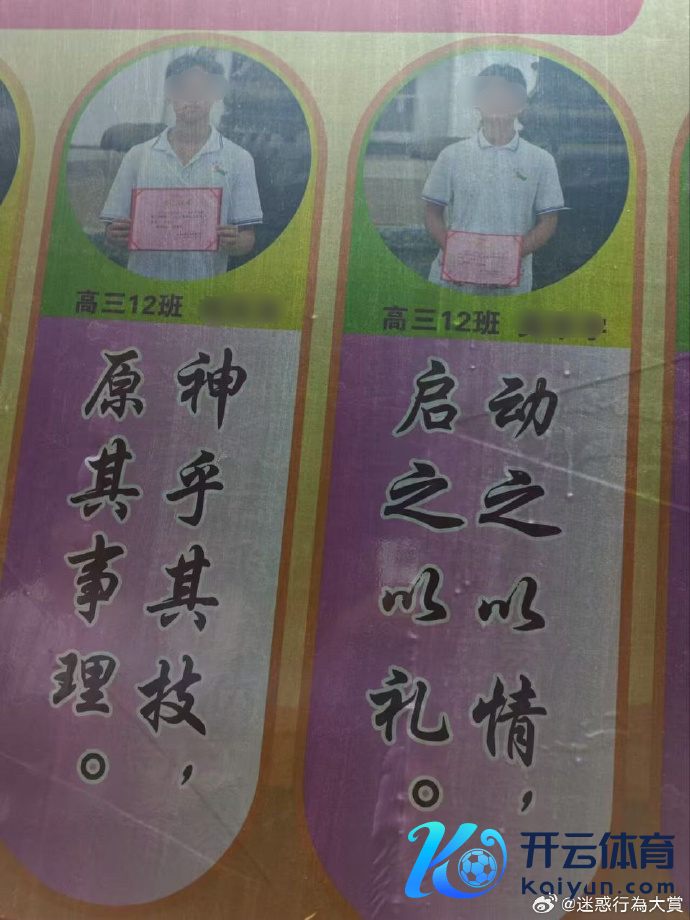 高三12班
神乎其技，
原其事理。
高三12班
动之以情，
启之以礼。
开云体育
kaiyun.com
@迷惑行為大賞